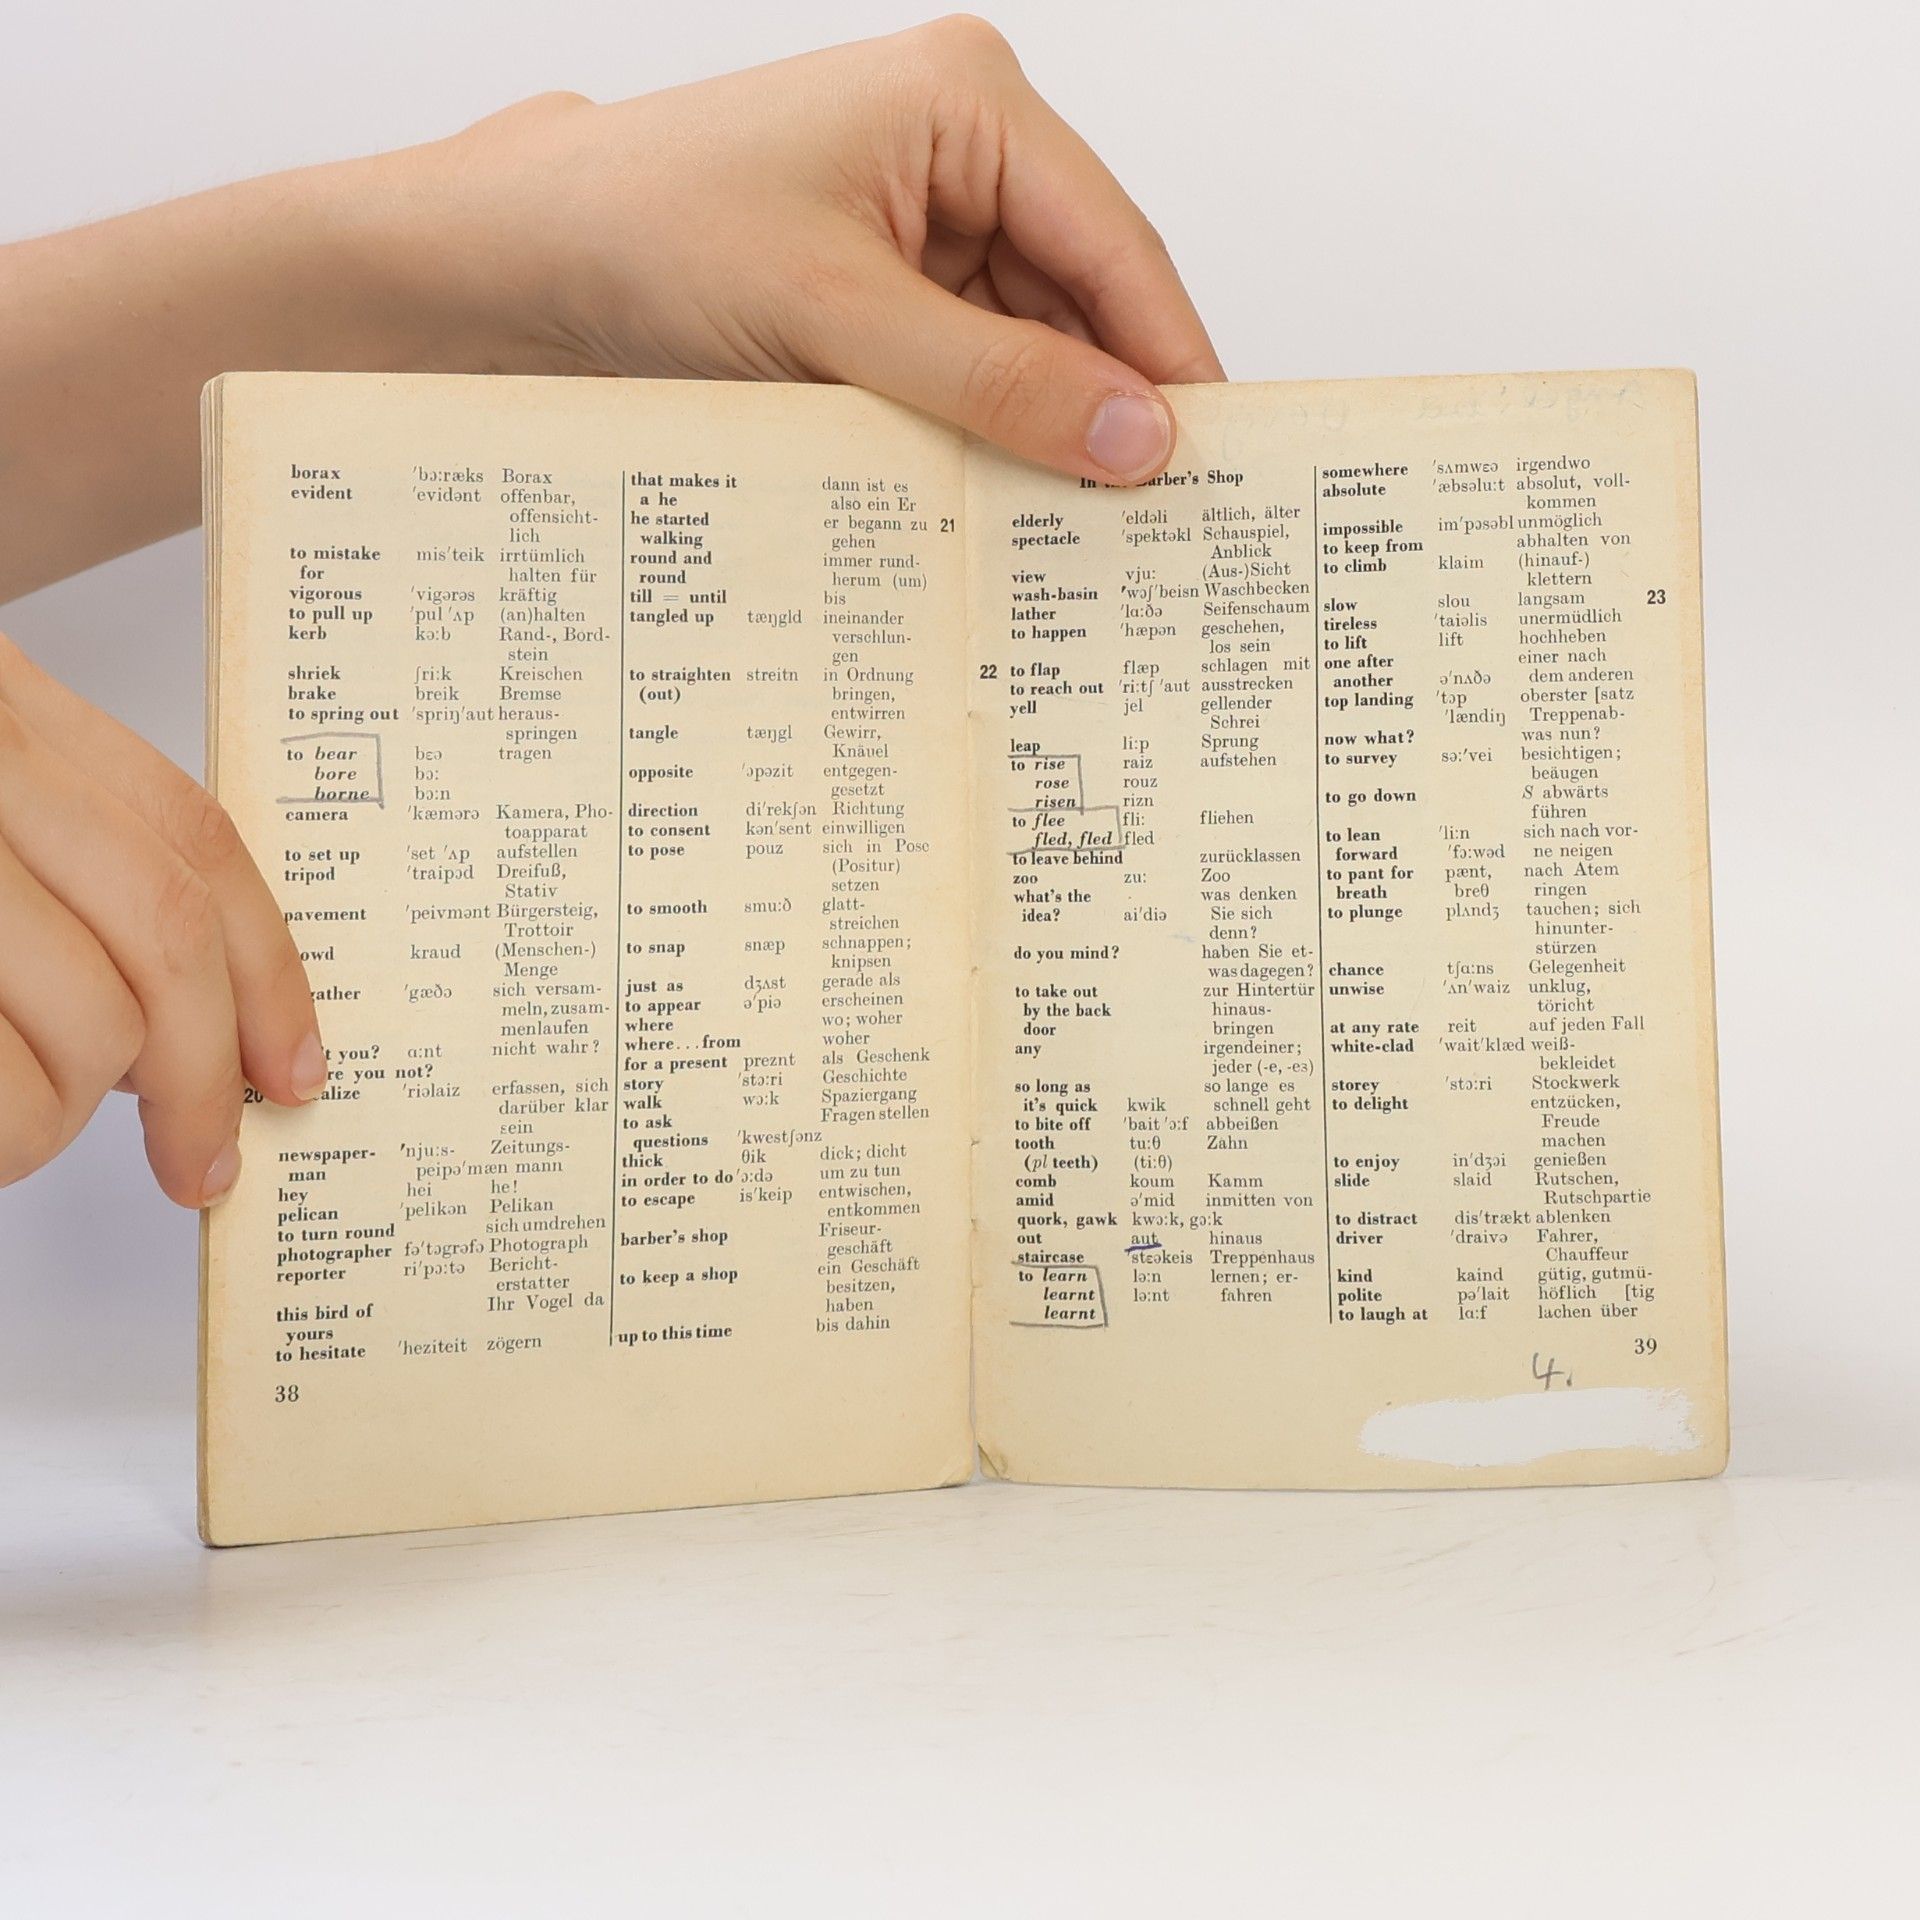 borax 'bɔ:ræks Borax
evident 'evidənt offenbar,
offensicht-
lich
to mistake mis'teik irrtümlich
for halten für
vigorous 'vigərəs kräftig
to pull up 'pul 'ʌp (an)halten
kerb kə:b Rand-, Bord-
stein
shriek ʃri:k Kreischen
brake breik Bremse
to spring out 'spriŋ'aut heraus-
springen
to bear bɛə tragen
bore bɔ:
borne bɔ:n
camera 'kæmərə Kamera, Pho-
toapparat
to set up 'set 'ʌp aufstellen
tripod 'traipɔd Dreifuß,
Stativ
pavement 'peivmənt Bürgersteig,
Trottoir
owd kraud (Menschen-)
Menge
gather 'gæðə sich versam-
meln, zusam-
menlaufen
't you? ɑ:nt nicht wahr?
re you not?
20 alize 'riəlaiz erfassen, sich
darüber klar
sein
newspaper- 'nju:s- Zeitungs-
man peipə'mæn mann
hey hei he!
pelican 'pelikən Pelikan
to turn round sich umdrehen
photographer fə'tɔgrəfə Photograph
reporter ri'pɔ:tə Bericht-
erstatter
this bird of Ihr Vogel da
yours
to hesitate 'heziteit zögern
38
that makes it dann ist es
a he also ein Er
he started er begann zu 21
walking gehen
round and immer rund-
round herum (um)
till = until bis
tangled up tæŋgld ineinander
verschlun-
gen
to straighten streitn in Ordnung
(out) bringen,
entwirren
tangle tæŋgl Gewirr,
Knäuel
opposite 'ɔpəzit entgegen-
gesetzt
direction di'rekʃən Richtung
to consent kən'sent einwilligen
to pose pouz sich in Pose
(Positur)
setzen
to smooth smu:ð glatt-
streichen
to snap snæp schnappen;
knipsen
just as dʒʌst gerade als
to appear ə'piə erscheinen
where wo; woher
where...from woher
for a present preznt als Geschenk
story 'stɔ:ri Geschichte
walk wɔ:k Spaziergang
to ask Fragen stellen
questions 'kwestʃənz
thick θik dick; dicht
in order to do 'ɔ:də um zu tun
to escape is'keip entwischen,
entkommen
barber's shop Friseur-
geschäft
to keep a shop ein Geschäft
besitzen,
haben
up to this time bis dahin
In arber's Shop
elderly 'eldəli ältlich, älter
spectacle 'spektəkl Schauspiel,
Anblick
view vju: (Aus-)Sicht
wash-basin 'wɔʃ'beisn Waschbecken
lather 'lɑ:ðə Seifenschaum
to happen 'hæpən geschehen,
los sein
22 to flap flæp schlagen mit
to reach out 'ri:tʃ 'aut ausstrecken
yell jel gellender
Schrei
leap li:p Sprung
to rise raiz aufstehen
rose rouz
risen rizn
to flee fli: fliehen
fled, fled fled
to leave behind zurücklassen
zoo zu: Zoo
what's the was denken
idea? ai'diə Sie sich
denn?
do you mind? haben Sie et-
was dagegen?
to take out zur Hintertür
by the back hinaus-
door bringen
any irgendeiner;
jeder (-e, -es)
so long as so lange es
it's quick kwik schnell geht
to bite off 'bait 'ɔ:f abbeißen
tooth tu:θ Zahn
(pl teeth) (ti:θ)
comb koum Kamm
amid ə'mid inmitten von
quork, gawk kwɔ:k, gɔ:k
out aut hinaus
staircase 'stɛəkeis Treppenhaus
to learn lə:n lernen; er-
learnt lə:nt fahren
learnt
somewhere 'sʌmwɛə irgendwo
absolute 'æbsəlu:t absolut, voll-
kommen
impossible im'pɔsəbl unmöglich
to keep from abhalten von
to climb klaim (hinauf-)
klettern
slow slou langsam 23
tireless 'taiəlis unermüdlich
to lift lift hochheben
one after einer nach
another ə'nʌðə dem anderen
top landing 'tɔp oberster [satz
'lændiŋ Treppenab-
now what? was nun?
to survey sə:'vei besichtigen;
beäugen
to go down S abwärts
führen
to lean 'li:n sich nach vor-
forward 'fɔ:wəd ne neigen
to pant for pænt, nach Atem
breath breθ ringen
to plunge plʌndʒ tauchen; sich
hinunter-
stürzen
chance tʃɑ:ns Gelegenheit
unwise 'ʌn'waiz unklug,
töricht
at any rate reit auf jeden Fall
white-clad 'wait'klæd weiß-
bekleidet
storey 'stɔ:ri Stockwerk
to delight entzücken,
Freude
machen
to enjoy in'dʒɔi genießen
slide slaid Rutschen,
Rutschpartie
to distract dis'trækt ablenken
driver 'draivə Fahrer,
Chauffeur
kind kaind gütig, gutmü-
polite pə'lait höflich [tig
to laugh at lɑ:f lachen über
39
4.